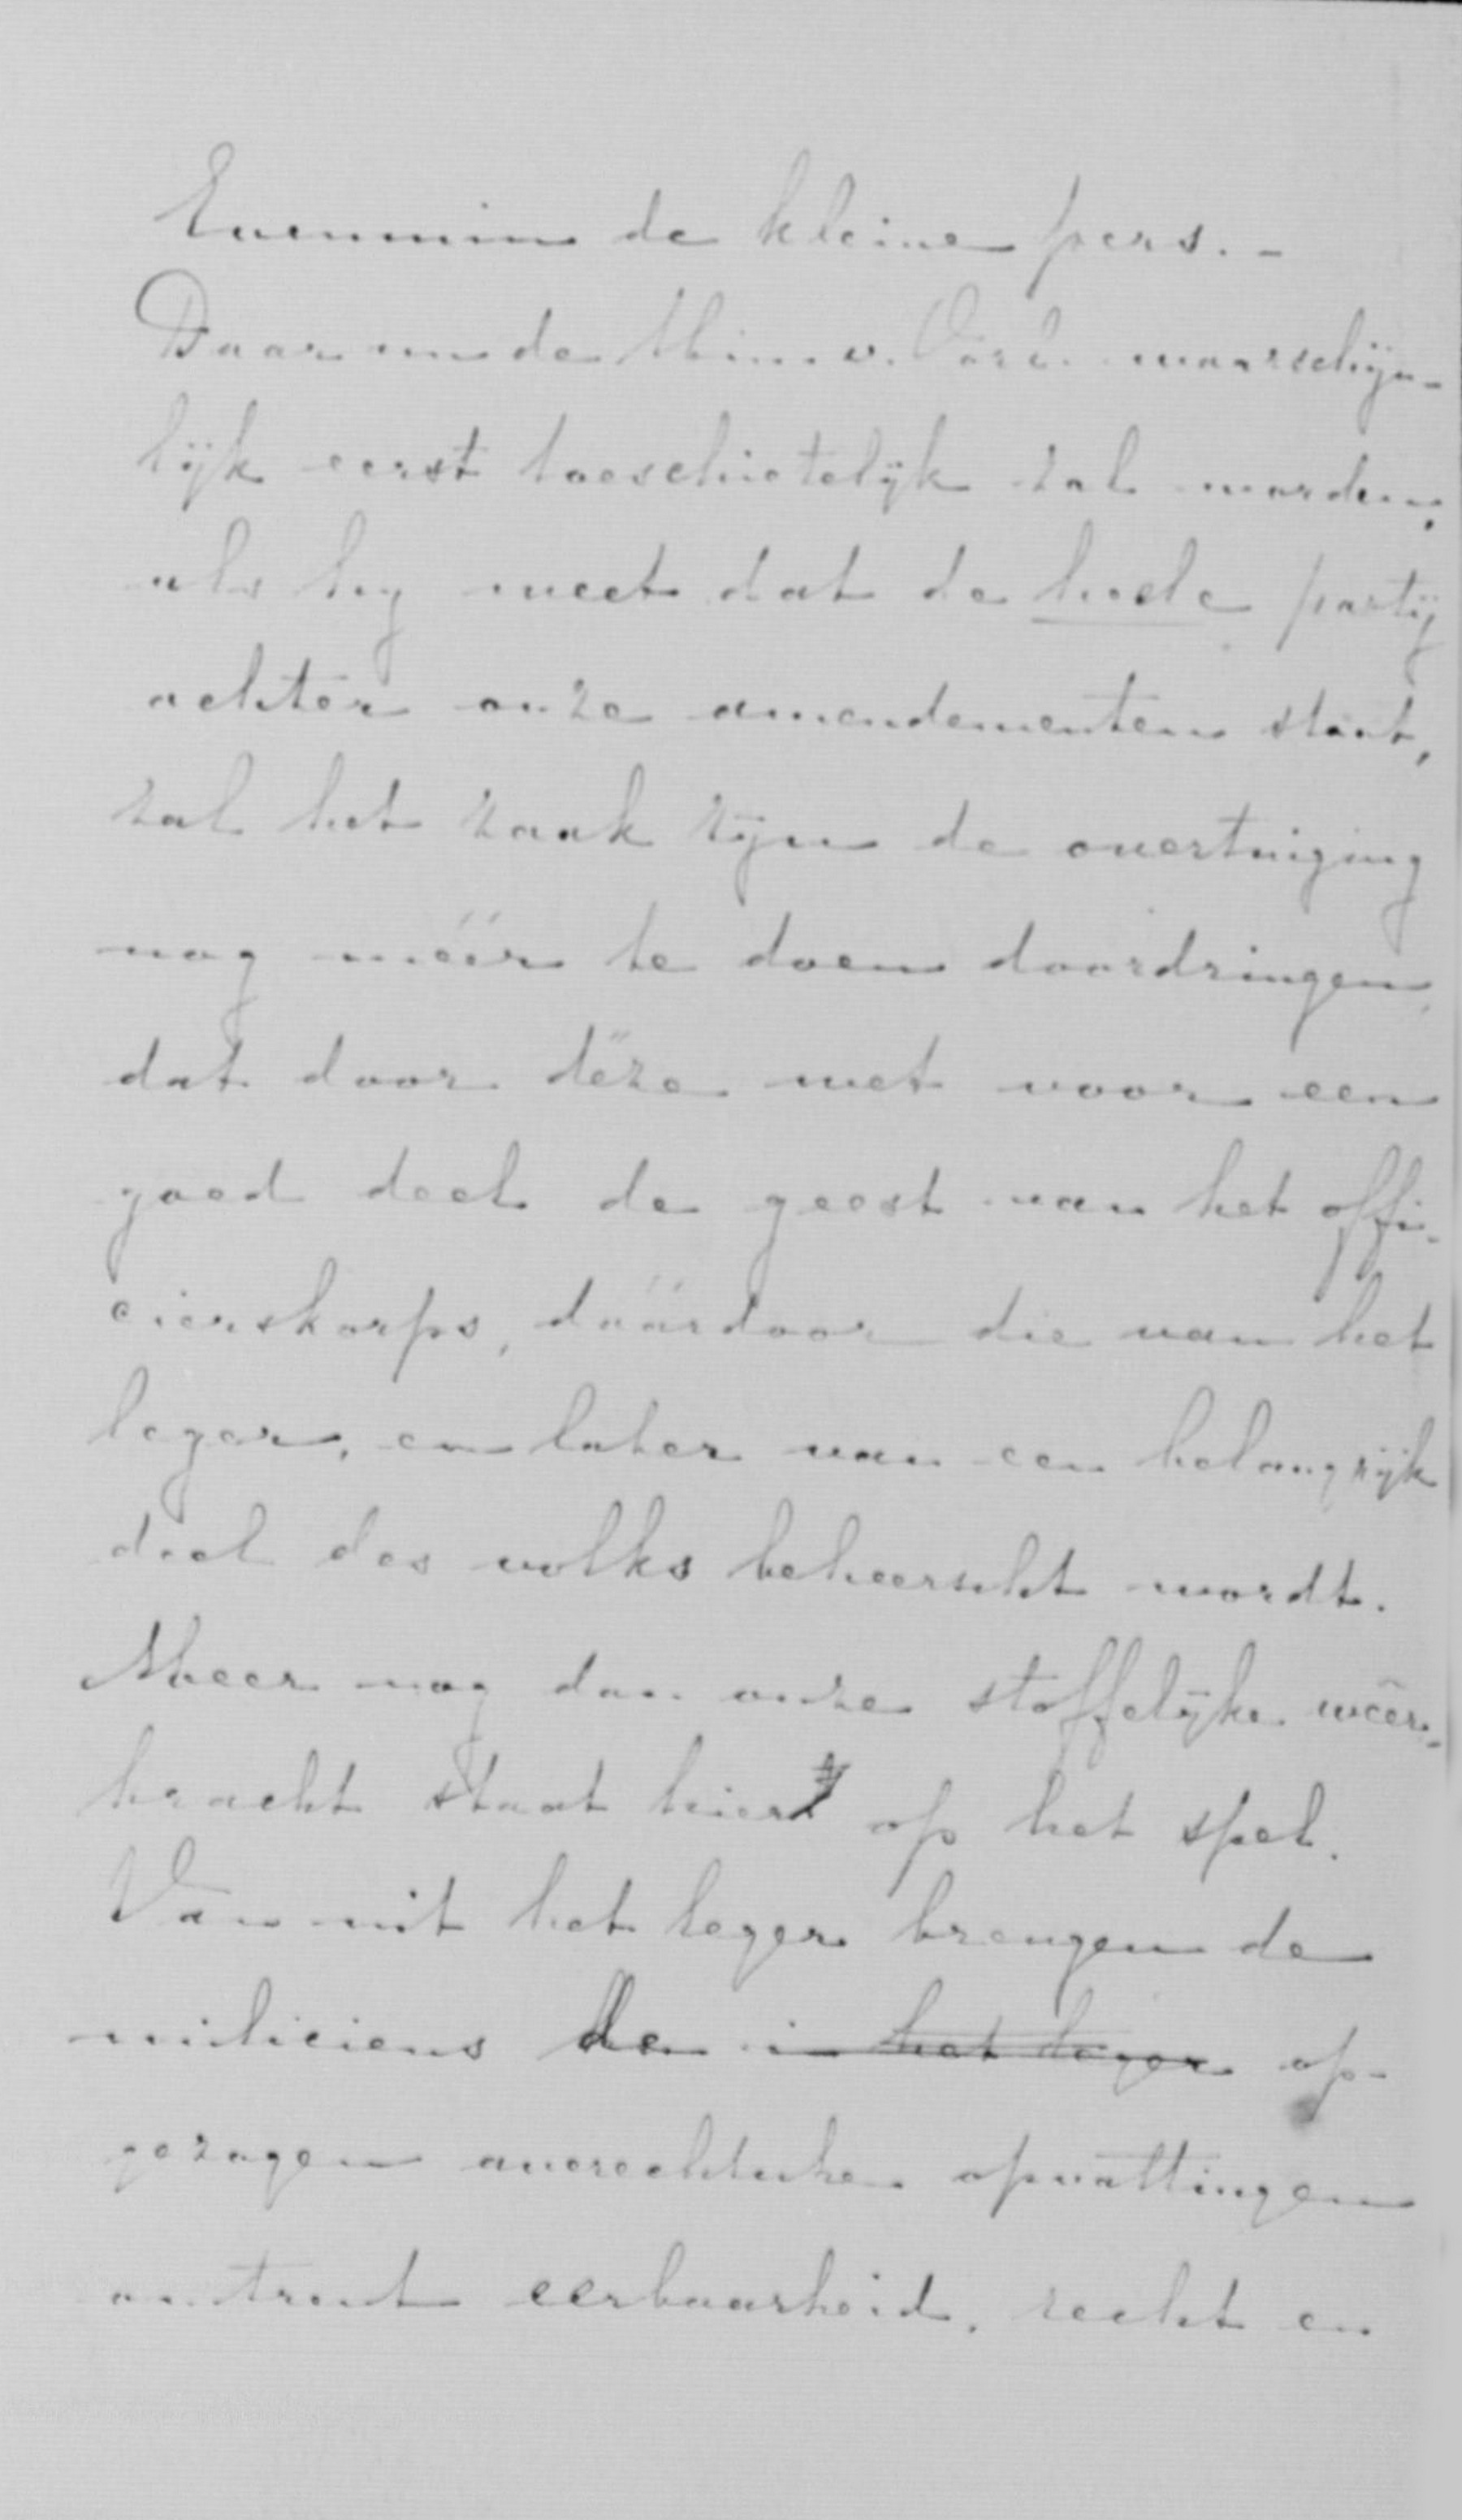 Evenmin de kleine pers. -
Daar nu de Min. v. Oorl. waarschijn-
lijk eerst toeschietelijk zal worden,
als hij weet dat de heele partij
achter onze amendementen staat,
zal het zaak zijn de overtuiging
nog méér te doen doordringen,
dat door déze wet voor een
goed deel de geest van het offi-
cierskorps, dáárdoor die van het
leger, en later van een belangrijk
deel des volks beheerscht wordt.
Meer nog dan onze stoffelijke weêr-
kracht staat hier op het spel.
Van uit het leger brengen de
miliciens de in het leger op-
gezogen averechtsche opvattingen
omtrent eerbaarheid, recht en